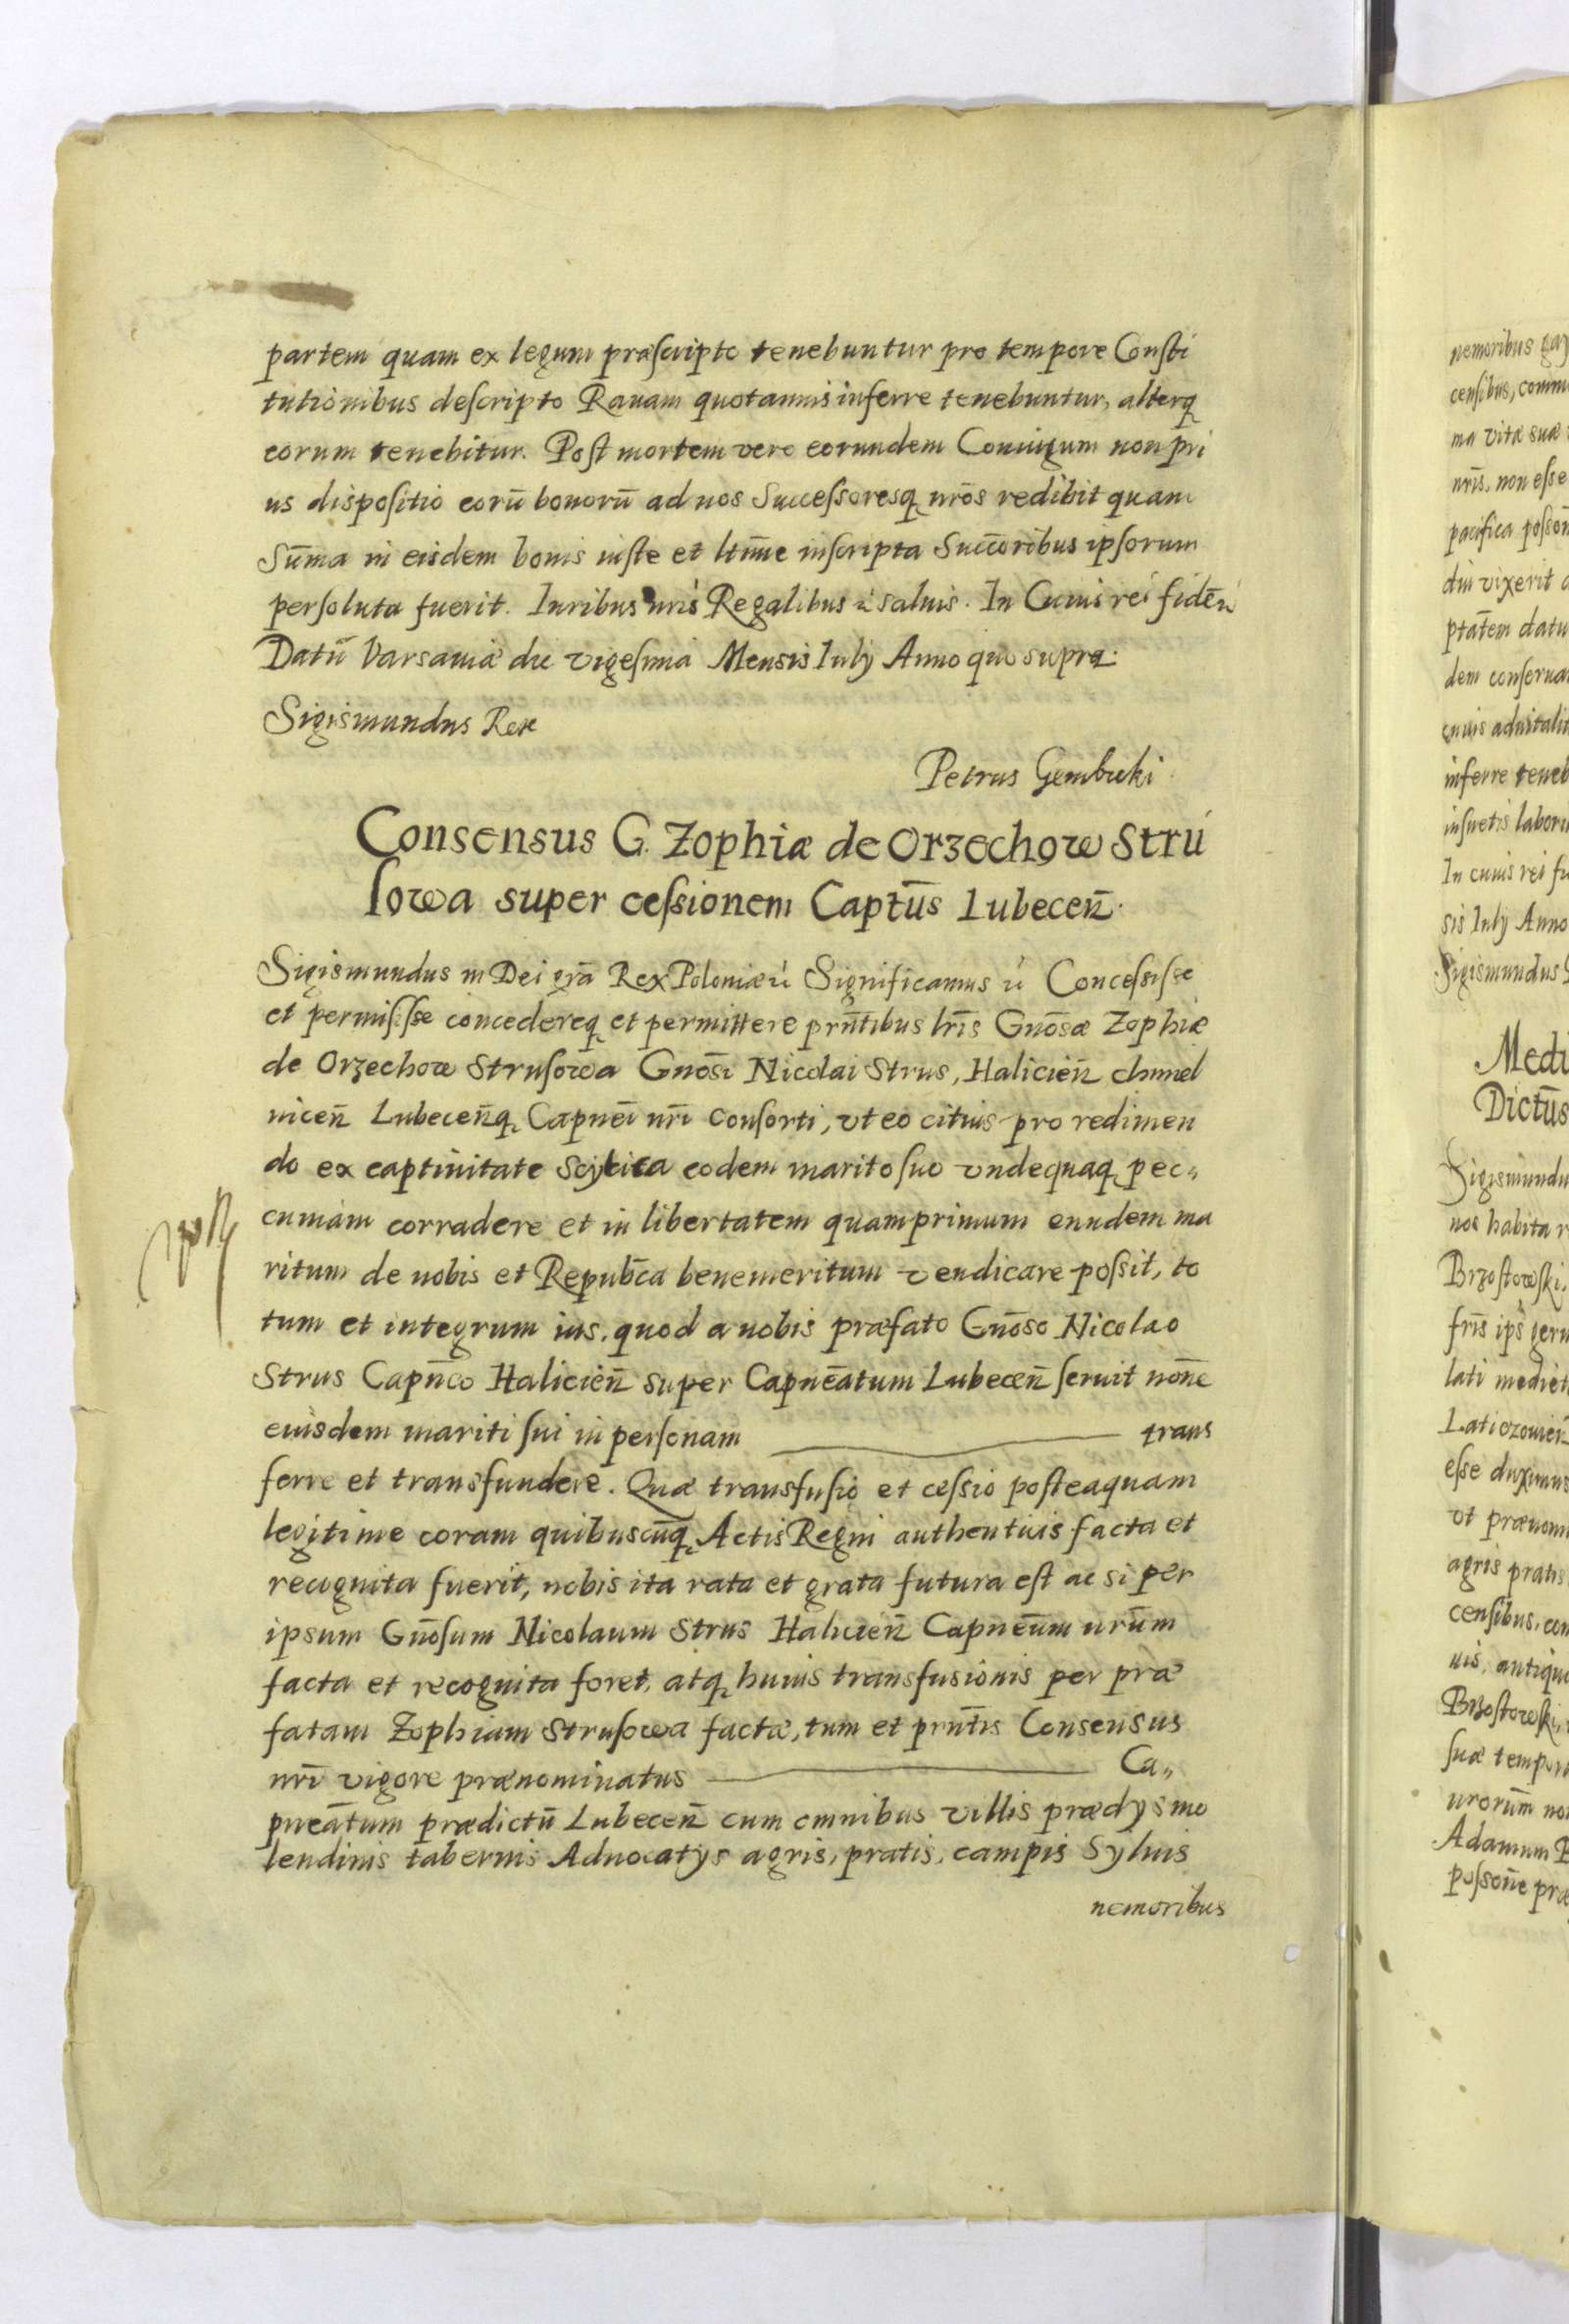 partem quam ex legum præscripto tenebuntur pro tempore Consti
tutionibus descripto Ravam quotannis inferre tenebuntur, alterq
eorum tenebitur. Post mortem vero eorundem Coniugum non pri
us dispositio eorū bonorū ad nos Successoresq nrōs redibit quam
Sūma in eisdem bonis iuste et ltīme inscripta Succōribus ipsorum
persoluta fuerit. Iuribus nris Regalibus salvis. In Cuius rei fidē
Datū Varsaviæ die vigesima Mensis Iulÿ Anno quo supra.
Sigismundus Rex
Petrus Gembicki
Consensus G. Zophiæ de Orzechow Stru
sowa super cessionem Captūs Lubeceñ.
Sigismundus III Dei grā Rex Poloniæ Significamus Concessisse
et permisisse concedereq et permittere prñtibus lrīs Gnōsæ Zophiæ
de Orzechow Strusowa Gnōsi Nicolai Strus, Halicieñ chmel
niceñ Lubeceñq Capneī nrī consorti, vt eo citius pro redimen
do ex captivitate Scytica eodem marito suo vndequaq pec„
cuniam corradere et in libertatem quamprimum eundem ma
ritum de nobis et Repub̄ca benemeritum vendicare possit, to
tum et integrum ius, quod a nobis præfato Gnōso Nicolao
Strus Capñeo Halicieñ super Capneātum Lubeceñ seruit noñe
eiusdem mariti sui in personam trans
ferre et transfundere. Quæ transfusio et cessio posteaquam
legitime coram quibuscūq Actis Regni authenticis facta et
recognita fuerit, nobis ita rata et grata futura est ac si per
ipsum Gnōsum Nicolaum Strus Halicieñ Capneūm nrūm
facta et recognita foret, atq huius transfusionis per præ
fatam Zophiam Strusowa factæ, tum et prñtis Consensus
nrī vigore prænominatus Ca„
pneātum prædictū Lubeceñ cum omnibus villis prædÿs mo
lendinis tabernis Aduocatÿs agris, pratis, campis Syluis
nemoribus
nemoribus
censibus,
ma vitæ suæ
nrīs, non esse
pacifica
diu vixerit
ptātem datu
dem conserua
cuius
inferre teneb
In cuius rei
sis Iulÿ Anno
Sigismundus
Medi
Dictūs
Sigismundu
nos habita
Brzostowski
frīs
lati mediet
esse duximus
vt prænom
agris pratis
censibus,
uis, antiqu
Brzostowski
suæ tempor
Adamum B
possoñe præ